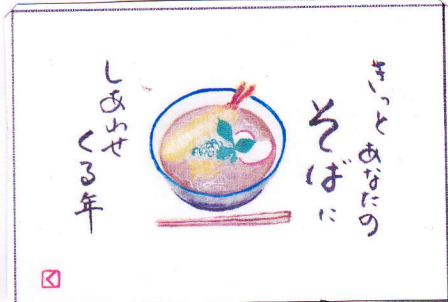 きっとあなたの
そばに
しあわせ
くる年
く